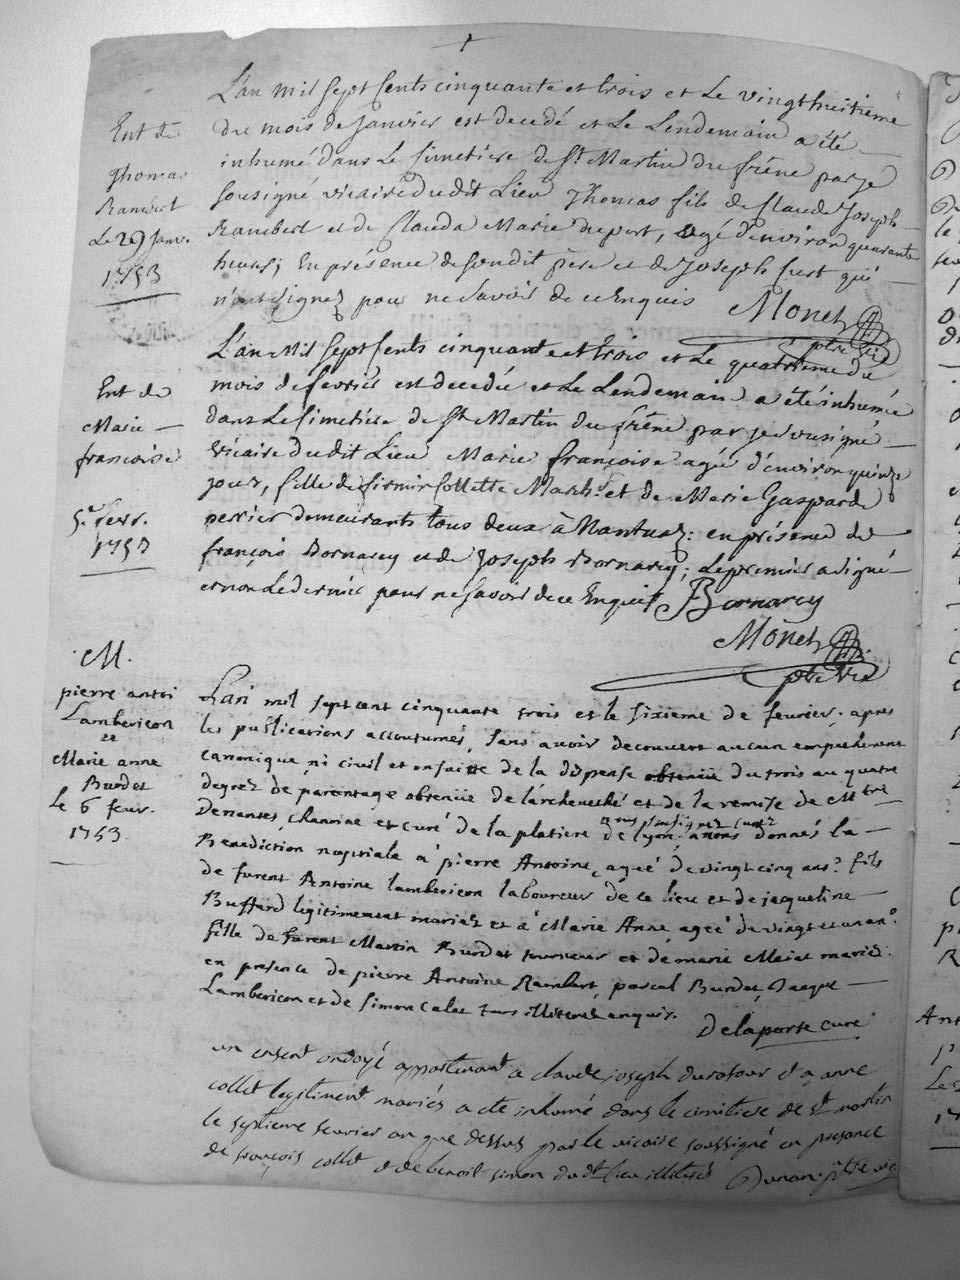 L'an mil sept cents cinquante et trois et le vingthuitieme
du mois de Janvier est decedé et le Lendemain a été
inhumé dans le simetiere de St Martin du frêne par je
sousigné vicaire dudit Lieu Thomas fils de Claude Joseph
Rambert et de Clauda Marie duport, agé d'environ quarante
heures; En présence de sondit père et de Joseph qui
n'ont signez pour ne savoir de ce Enquis
Monet
ptre vic
Ent de
Thomas
Rambert
Le 29 Janv.
1753
L'an Mil sept cents cinquante et trois et Le quatrieme du
mois de fevrier est decedée et Le Lendemain a été inhumée
dans Le simetiére de St Martin du frêne par je sousigné
Vicaire dudit Lieu Marie françoise agée d'environ quinze
jours, fille de firmin Collette March. et de Marie Gasparde
perrier demeurants tous deux à Nantua: en présence de
françois Bornarcy et de Joseph Bornarcy; Le premier a signé
et non Le dernier pour ne savoir de ce Enquis Bornarcy
Monet
ptre vic
Ent de
Marie
francoise
5e fevr.
1753
L'an mil sept cent cinquante trois et le sixieme de fevrier. apres
les publications accoutumés, sans avoir decouvert aucun empechement
canonique ni civil et ensuitte de la dispense obtenüe du trois au quatre
degrez de parentage obtenüe de l'archeveché et de la remise de Mtre
Denantes, chanoine et curé de la platiere de lyon, nous soussigné curé avons donnés la
Benediction nuptiale à pierre Antoine, ageé de vingt cinq ans. fils
de furent Antoine lambericon laboureur de ce lieu et de jacqueline
Buffard legitimement mariez et à Marie Anne ageé de vingt et un an.
fille de furent Martin Burdet tourneur et de marie mariez.
en presence de pierre Antoine Rambert, pascal Burdet, Jacque
Lambericon et de Simon Calet tous illiterés enquis.
Delaporte curé
M.
pierre antoi
Lambericon
et
Marie anne
Burdet
le 6 feur.
1753
un enfant ondoyé appartenant a claude joseph durafour et a anne
collet legitiment mariés a été inhumé dans le cimitiere de st martin
le septieme fevrier an que dessus par le vicaire soussigné en presence
de françois collet et de benoit simon du dt lieu illiterés Dunan ptre vic